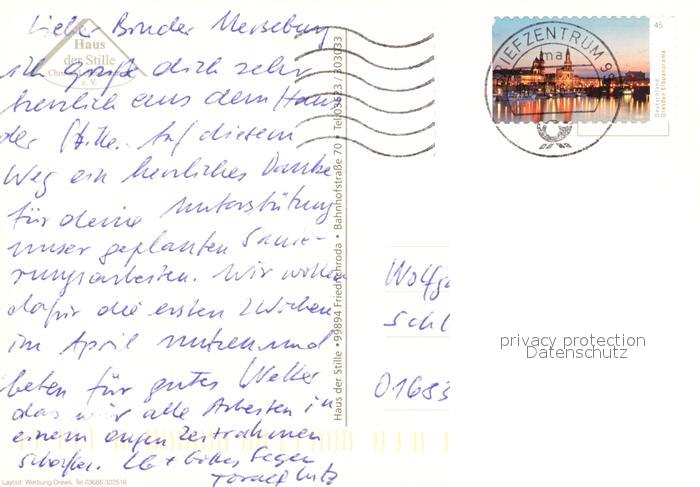 Lieber Bruder Merseburg
Haus
der Stille
e. V.
ich grüße dich sehr
herzlich aus dem Haus
der Stille. Auf diesem
Weg ein herzliches Danke
für deine Unterstützung
unser geplanten Sanie-
rungsarbeiten. Wir wollen
dafür die ersten 2 Wochen
im April nutzen und
beten für gutes Wetter
das wir alle Arbeiten in
einem engen Zeitrahmen
schaffen. LG + Gottes Segen
Layout: Werbung Drews, Tel 03686-322516
Haus der Stille • 99894 Friedrichroda • Bahnhofstraße 70 • Tel 03623 / 303033
BRIEFZENTRUM 99
45
Deutschland
Dresden Elbpanorama
Wolfg
Schl
privacy protection
Datenschutz
01683